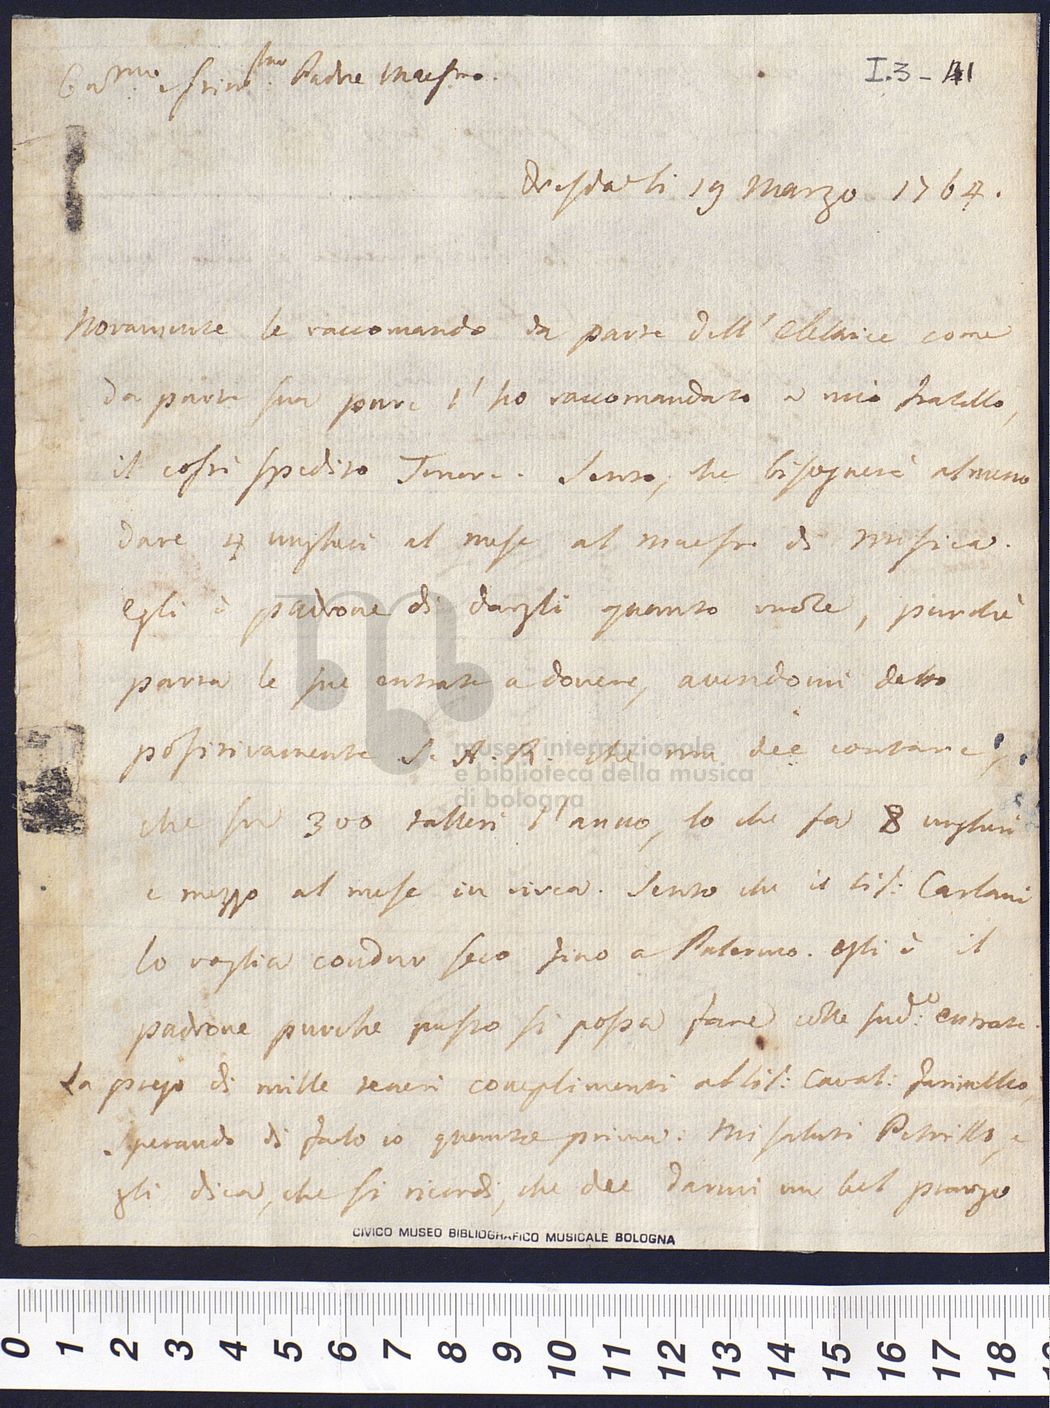 Car.mo e stim.mo Padre Maestro.
I.3-141
Dresda li 19 Marzo 1764.
Novamente le raccomando da parte dell' Elettrice come
da parte sua pure l' ho raccomandato a mio fratello,
il costì spedito Tenore. Sento, che bisognerà almeno
dare 4 ungheri al mese al maestro di Musica.
Egli è padrone di dargli quanto vuole, purchè
parta le sue entrate a dovere, avendomi detto
positivamente S. A. R. che mi dee contare,
che su 300 talleri l'anno, lo che fa 8 ungheri
e mezzo al mese in circa. Sento che il Sig: Carlani
lo voglia condur seco fino a Palermo. Egli è il
padrone purchè questo si possa fare colle sud.e entrate.
La prego di mille teneri complimenti al Sig: Caval: Farinello,
sperando di farlo io quanto prima. Mi saluti Petrillo, e
gli dica, che si ricordi, che dee darmi un bel pranzo
museo internazionale
e biblioteca della musica
di bologna
CIVICO MUSEO BIBLIOGRAFICO MUSICALE BOLOGNA
0 1 2 3 4 5 6 7 8 9 10 11 12 13 14 15 16 17 18